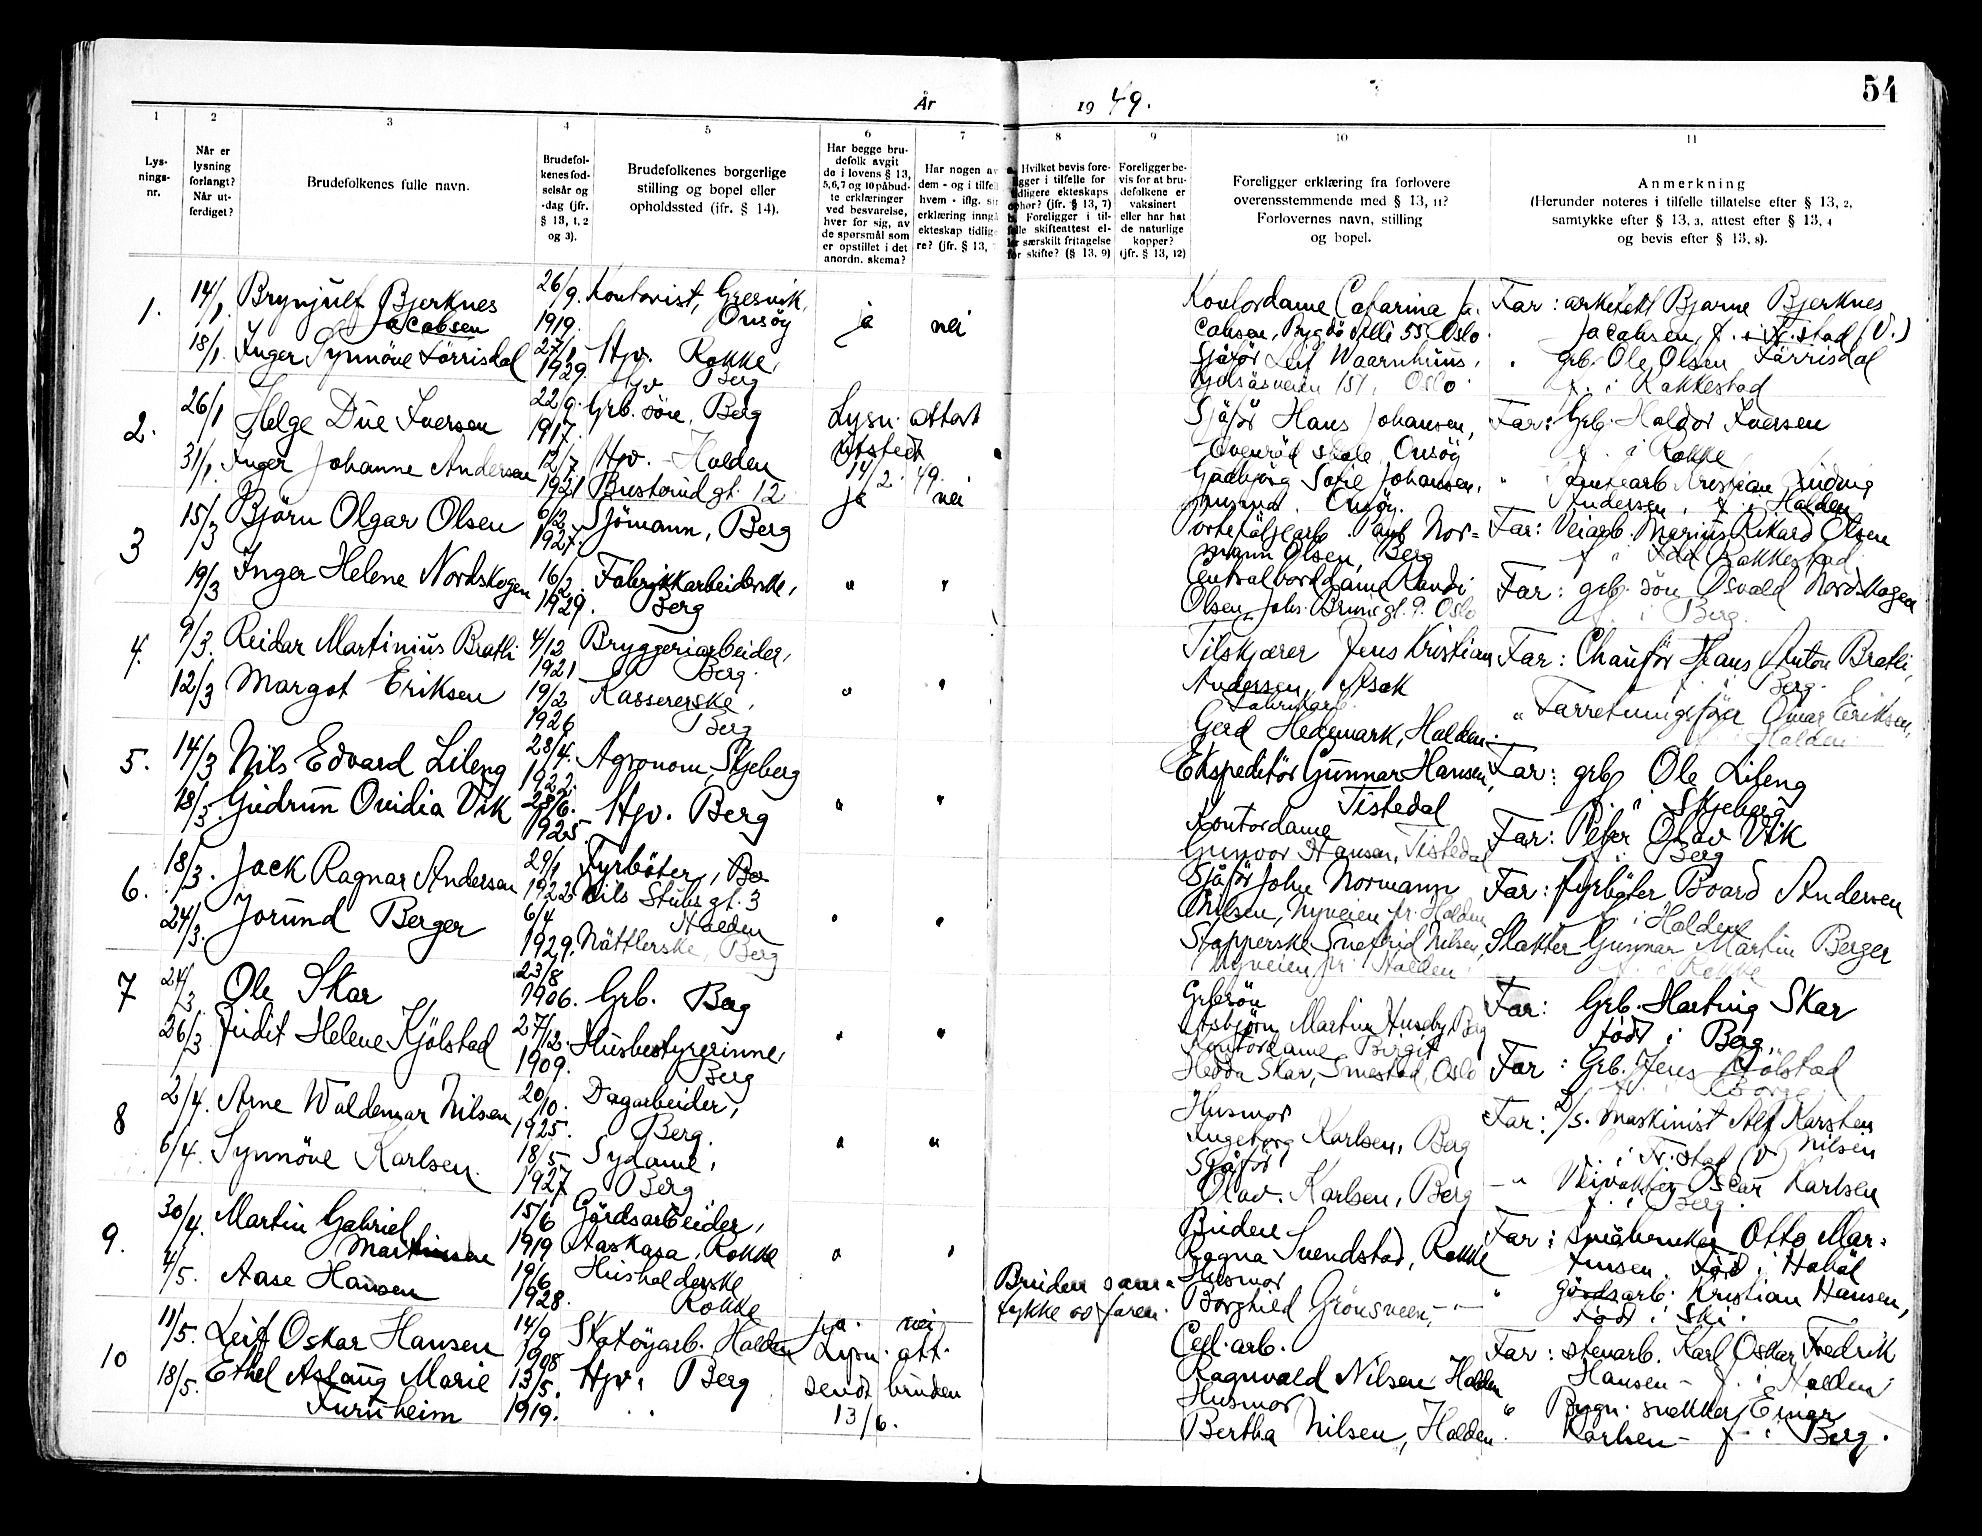 54
År 1949.
1
2
3
4
5
6
7
8
9
10
11
Lys-
nings-
nr.
Når er
lysning
forlangt?
Når ut-
ferdiget?
Brudefolkenes fulle navn.
Brudefol-
kenes fød-
selsår og
-dag (jfr.
§ 13, 1, 2
og 3).
Brudefolkenes borgerlige
stilling og bopel eller
opholdssted (ifr. § 14).
Har begge bru-
defolk avgit
de i lovens § 13,
5,6,7 og 10 påbud-
te erklæringer
ved besvarelse,
hver for sig, av
de spørsmål som
er opstillet i det
anordn. skema?
Har nogen av
dem - og i tilfelle
hvem - iflg.
erklæring inngå
ekteskap tidlige
re? (jfr. § 13,
Hvilket bevis fore-
ligger i tilfelle for
tidligere ekteskaps
ophør? (jfr. § 13, 7)
Foreligger i til-
felle skifteattest el-
ler særskilt fritagelse
for skifte? (§ 13, 9)
Foreligger be-
vis for at bru-
defolkene er
vaksinert
eller har hat
de naturlige
kopper?
(jfr. § 13, 12)
Foreligger erklæring fra forlovere
overensstemmende med § 13, 11?
Forlovernes navn, stilling
og bopel.
Anmerkning
(Herunder noteres i tilfelle tillatelse efter § 13, 2,
samtykke efter § 13, 3, attest efter § 13, 4
og bevis efter § 13, 8).
1. 14/1 Brynjulf Bjerknes
Jacobsen
26/9. 1919. Kontorist, Gresvik,
Onsöy
ja nei
Kontordame Catarina Ja-
cobsen, Bygdö Alle 55 Oslo.
Far: arkitekt Bjarne Bjerknes
Jacobsen, f. i Fr.stad (V.)
18/1. Inger Synnöve Förrisdal
27/1 1929. Hjv. Rokke,
Hjv Berg
Sjåför Leif Waarnhuus,
151, Oslo.
" grb. Ole Olsen Förrisdal
f. i Rakkestad
2. 26/1 Helge Due Iversen
22/9. 1917. Grb. sön, Berg
Lysn. attest
utstedt
14/2. 49.
Sjåför Hans Johansen,
skole, Onsöy
Far: Grb. Haldor Iversen
f. i Rokke
31/1. Inger Johanne Andersen
12/7 1921 Hjv. - Halden
Busterud gt. 12
Gudbjörg Sofie Johansen,
Onsöy.
" Kristian Ludvig
Andersen, f. i Halden
3 15/3 Björn Olgar Olsen
6/2 1927. Sjömann, Berg
ja nei
Paul Nor=
mann Olsen, Berg
Far: Veiarb. Marius Rikard Olsen
f " Rakkestad
19/3 Inger Helene Nordskogen
16/2. 1929. Fabrikkarbeiderske,
Berg
" "
Centralborddame Randi
Olsen, Johs. Brunsgt. 9. Oslo
Far: grb. sön Osvald Nordskogen
f. i Berg.
4. 9/3. Reidar Martinius Bratli
4/12 1921 Bryggeriarbeider,
Berg.
Tilskjærer Jens Kristian
Andersen, Asak
Far: Chauför Hans Anton Bratli,
f. i Berg.
12/3 Margot Eriksen
19/2 1926 Kassererske,
Berg
" "
Fabrikarb.
Gerd Hedemark, Halden.
" Forretningsförer Omar Eriksen,
Halden
5. 14/3 Nils Edvard Lileng
28/4. 1922. Agronom, Skjeberg
Ekspeditör Gunnar Hansen,
Tistedal
Far: grb. Ole Lileng
f. " Skjeberg.
18/3. Gudrun Ovidia Vik
28/6. 1925. Hjv. Berg
" "
Kontordame
Gunvor Hansen, Tistedal
Far: Peter Olav Vik
f. i Berg
6. 18/3. Jack Ragnar Andersen
29/1 1922 Fyrböter, Be
Nils Stubs gt. 3
Halden
Sjåför John Normann
Nilsen, Nyveien pr. Halden
Far: fyrböter Board Andersen
f. i Halden
24/3. Jorund Berger
6/4 1929. Nåttlerske, Berg
" "
Stopperske Snefrid Nilsen,
Nyveien pr. Halden
Slakter Gunnar Martin Berger
f. i Rokke
7 24/3 Ole Skar
23/8 1906. Grb. Berg
Grb.sön
Asbjörn Martin Huseby, Berg
Far: Grb. Harting Skar
född i Berg.
26/3 Judit Helene Kjölstad
27/12. 1909. Husbestyrerinne,
Berg
" "
Kontordame Birgit
Hedda Skar, Smestad, Oslo
Far: Grb. Jens Kjölstad
f. i Borge
8 2/4. Arne Waldemar Nilsen
20/10. 1925. Dagarbeider,
Berg.
Husmor
Ingeborg Karlsen, Berg
Far: D/S. maskinist Alf Karsten
Nilsen
f. i Fr.stad (V)
6/4. Synnöve Karlsen.
18/5 1927 Sydame,
Berg.
" "
Sjåför
Olav. Karlsen, Berg
-" Veivokter Oscar Karlsen
f. i Berg.
9. 30/4. Martin Gabriel
Martinsen
15/6 1919 Gårdsarbeider,
Aaskasa, Rokke
" "
Budeie
Ragna Svendstad, Rokke
Far: småbruker Otto Mar=
tinsen. född i Hobøl
4/5. Aase Hansen
19/6 1928. Husholderske
Rokke
Bruden sam=
tykke av faren.
Husmor
Borghild Grönsveen, -"-
" gårdsarb. Kristian Hansen,
född i Ski.
10 11/5. Leif Oskar Hansen
14/9 1908 Skotöyarb. Halden
ja. nei
Lysn. att.
sendt bruden
13/6.
Cell. arb.
Ragnvald Nilsen, Halden
Far: stenarb. Karl Oskar Fredrik
Hansen - f. i Halden
18/5. Ethel Aslaug Marie
Furuheim
13/5. 1919. Hjv. Berg
Husmor
Bertha Nilsen, Halden.
" Bygn. snekker Einar
Karlsen - f. i Berg.